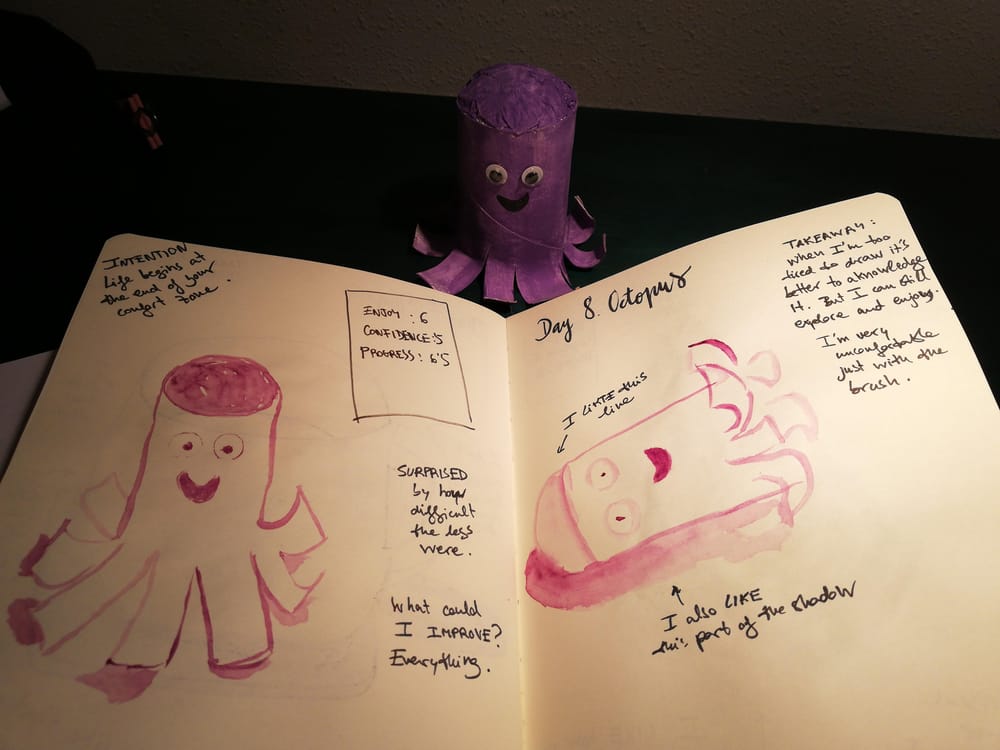 INTENTION
Life begins at
the end of your
comfort zone.
ENJOY : 6
CONFIDENCE: 5
PROGRESS : 6'5
SURPRISED
by how
difficult
the legs
were.
What could
I IMPROVE?
Everything.
Day 8. Octopus
TAKEAWAY:
when I'm too
tired to draw it's
better to aknowledge
it. But I can still
explore and enjoy.
I'm very
uncomfortable
just with the
brush.
I LIKE this
line
I also LIKE
this part of the shadow